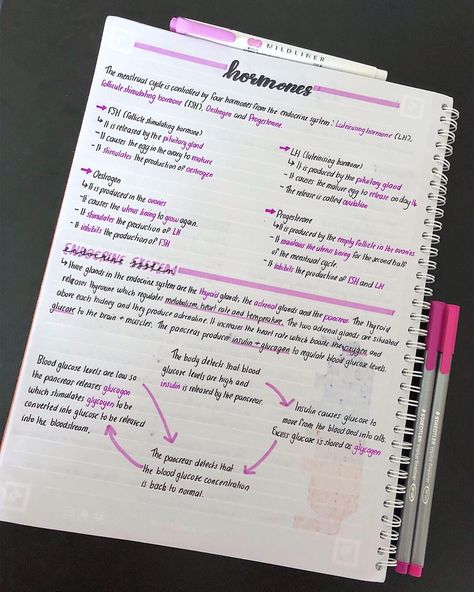 MILDLINER
hormones
The menstrual cycle is controlled by four hormones from the endocrine system: Luteinising hormone (LH),
Follicle stimulating hormone (FSH), Oestrogen and Progesterone.
→ FSH (Follicle stimulating hormone)
↳ It is released by the pituitary gland
- It causes the egg in the ovary to mature
- It stimulates the production of oestrogen
→ LH (luteinising hormone)
↳ It is produced by the pituitary gland
- It causes the mature egg to release on day 14
- The release is called ovulation
→ Oestrogen
↳ It is produced in the ovaries
- It causes the uterus lining to grow again.
- It stimulates the production of LH
- It inhibits the production of FSH
→ Progesterone
↳ It is produced by the empty follicle in the ovaries
- It maintains the uterus lining for the second half
of the menstrual cycle
- It inhibits the production of FSH and LH
ENDOCRINE SYSTEM
↳ three glands in the endocrine system are the thyroid glands, the adrenal glands and the pancreas. The thyroid
releases thyroxine which regulates metabolism, heart rate and temperature. The two adrenal glands are situated
above each kidney and they produce adrenaline. It increases the heart rate which boosts the oxygen and
glucose to the brain + muscles. The pancreas produces insulin + glucagon to regulate blood glucose levels.
The body detects that blood
glucose levels are high and
insulin is released by the pancreas.
Insulin causes glucose to
move from the blood and into cells.
Excess glucose is stored as glycogen
The pancreas detects that
the blood glucose concentration
is back to normal.
Blood glucose levels are low so
the pancreas releases glucagon
which stimulates glycogen to be
converted into glucose to be released
into the bloodstream.
STAEDTLER
STAEDTLER